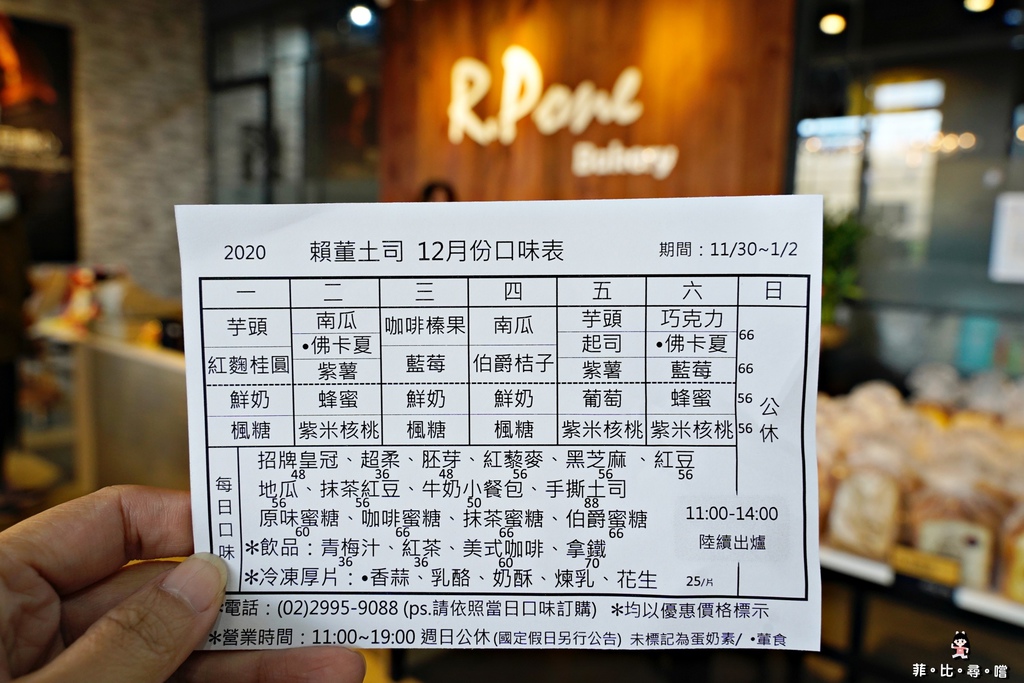 R.Pone
Bakery
2020 賴董土司 12月份口味表 期間：11/30~1/2
一 二 三 四 五 六 日
芋頭 南瓜 咖啡榛果 南瓜 芋頭 巧克力
•佛卡夏 起司 •佛卡夏 66
紅麴桂圓 紫薯 藍莓 伯爵桔子 紫薯 藍莓 66
鮮奶 蜂蜜 鮮奶 鮮奶 葡萄 蜂蜜 56
楓糖 紫米核桃 楓糖 楓糖 紫米核桃 紫米核桃 56
公休
每日口味
招牌皇冠、超柔、胚芽、紅藜麥、黑芝麻、紅豆
48 36 48 56 56 56
地瓜、抹茶紅豆、牛奶小餐包、手撕土司
56 56 50 88
原味蜜糖、咖啡蜜糖、抹茶蜜糖、伯爵蜜糖
60 66 66 66
＊飲品：青梅汁、紅茶、美式咖啡、拿鐵
36 36 60 70
＊冷凍厚片：•香蒜、乳酪、奶酥、煉乳、花生 25/片
11:00-14:00
陸續出爐
電話：(02)2995-9088 (ps.請依照當日口味訂購) ＊均以優惠價格標示
＊營業時間：11:00~19:00 週日公休(國定假日另行公告) 未標記為蛋奶素/ •葷食
菲•比•尋•嚐